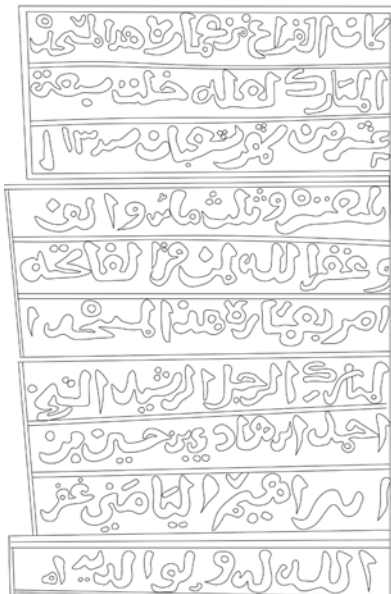 كان الفراغ من عمارة هذا المسجد
المبارك لعله خلت سبعة
عشر من شهر شعبان
وثلث مائه والف
وغفر الله لمن قرا الفاتحة
امر بعمارة هذا المسجد ا
لمبارك الرجل الرشيد التقي
حسين بن
ابراهيم اليامني غفر
الله له ولوالديه ام